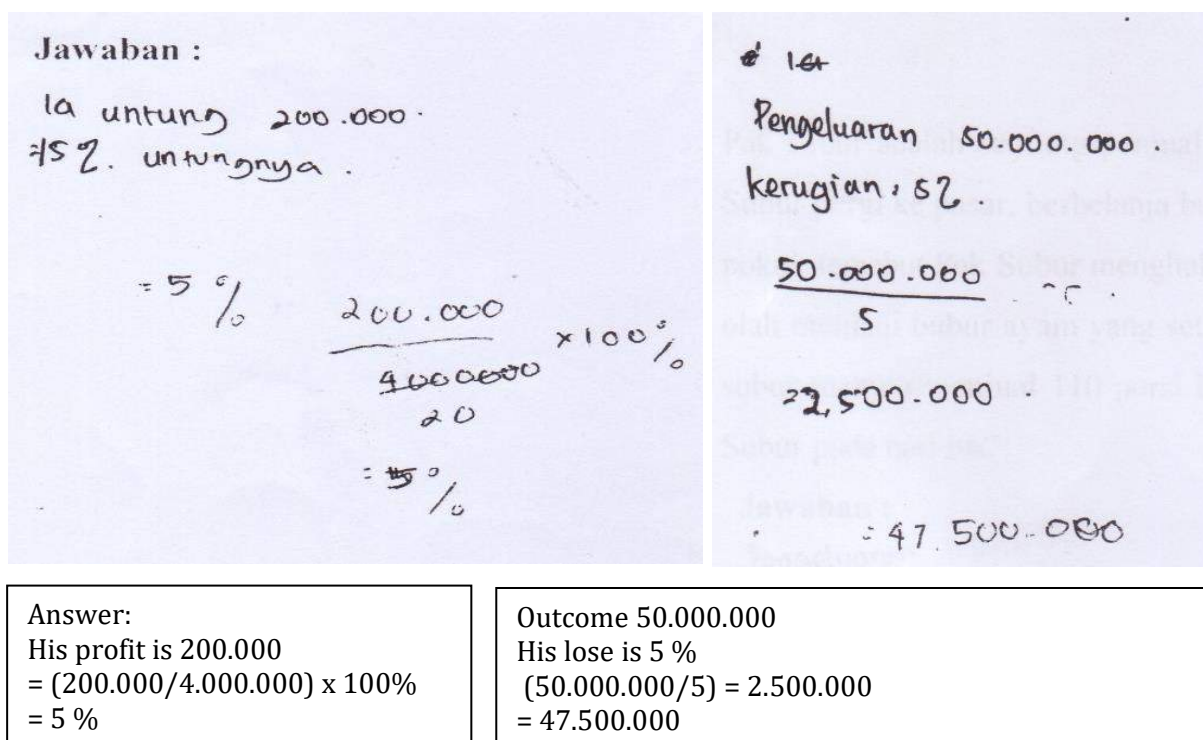 Jawaban :
Ia untung 200.000.
5%. untungnya.
= 5 %
200.000
4000000
x100%
20
= 5 %
Pengeluaran 50.000.000.
kerugian : 5%.
50.000.000
5
= 2,500.000.
= 47.500.000
Answer:
His profit is 200.000
= (200.000/4.000.000) x 100%
= 5 %
Outcome 50.000.000
His lose is 5 %
(50.000.000/5) = 2.500.000
= 47.500.000